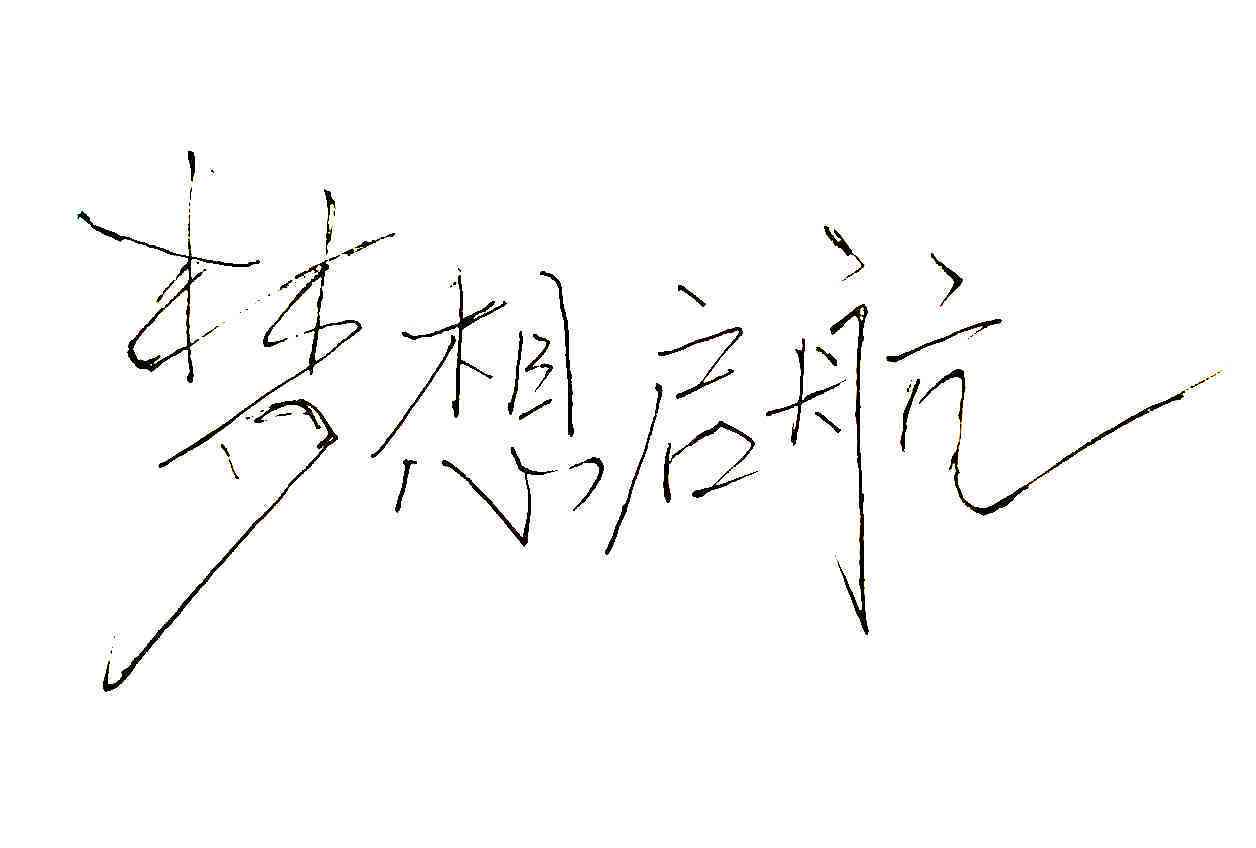 梦想启航